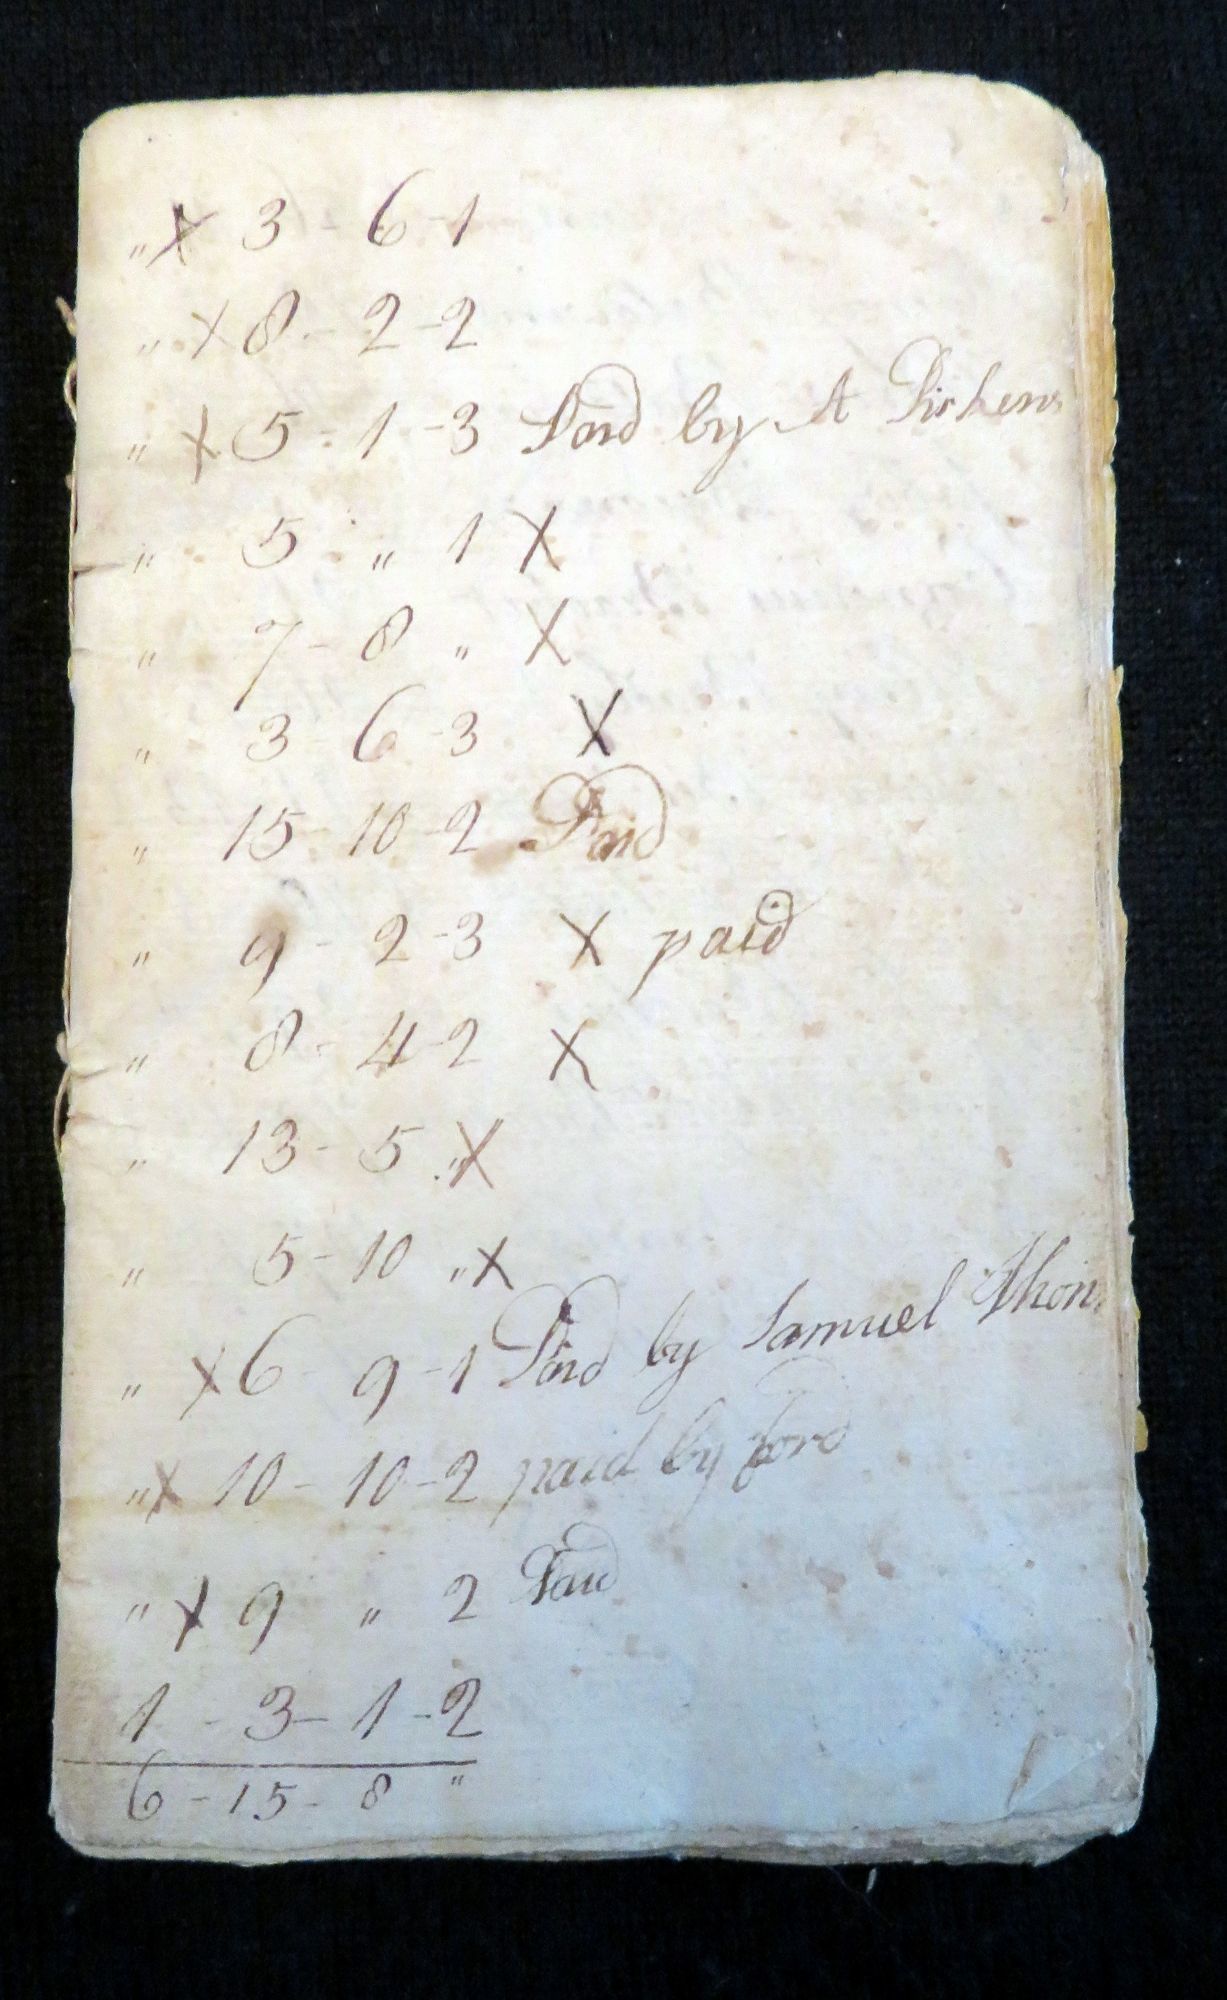 " X 3 - 6 - 1
" X 8 - 2 - 2
" X 5 - 1 - 3 Paid by A Pickens
" 5 " 1 X
" 7 - 8 " X
" 3 - 6 - 3 X
" 15 - 10 - 2 Paid
" 9 - 2 - 3 X paid
" 8 - 4 - 2 X
" 13 - 5 " X
" 5 - 10 " X
" X 6 - 9 - 1 Paid by Samuel
" X 10 - 10 - 2 paid by ford
" X 9 " 2 Paid
1 - 3 - 1 - 2
6 - 15 - 8 "